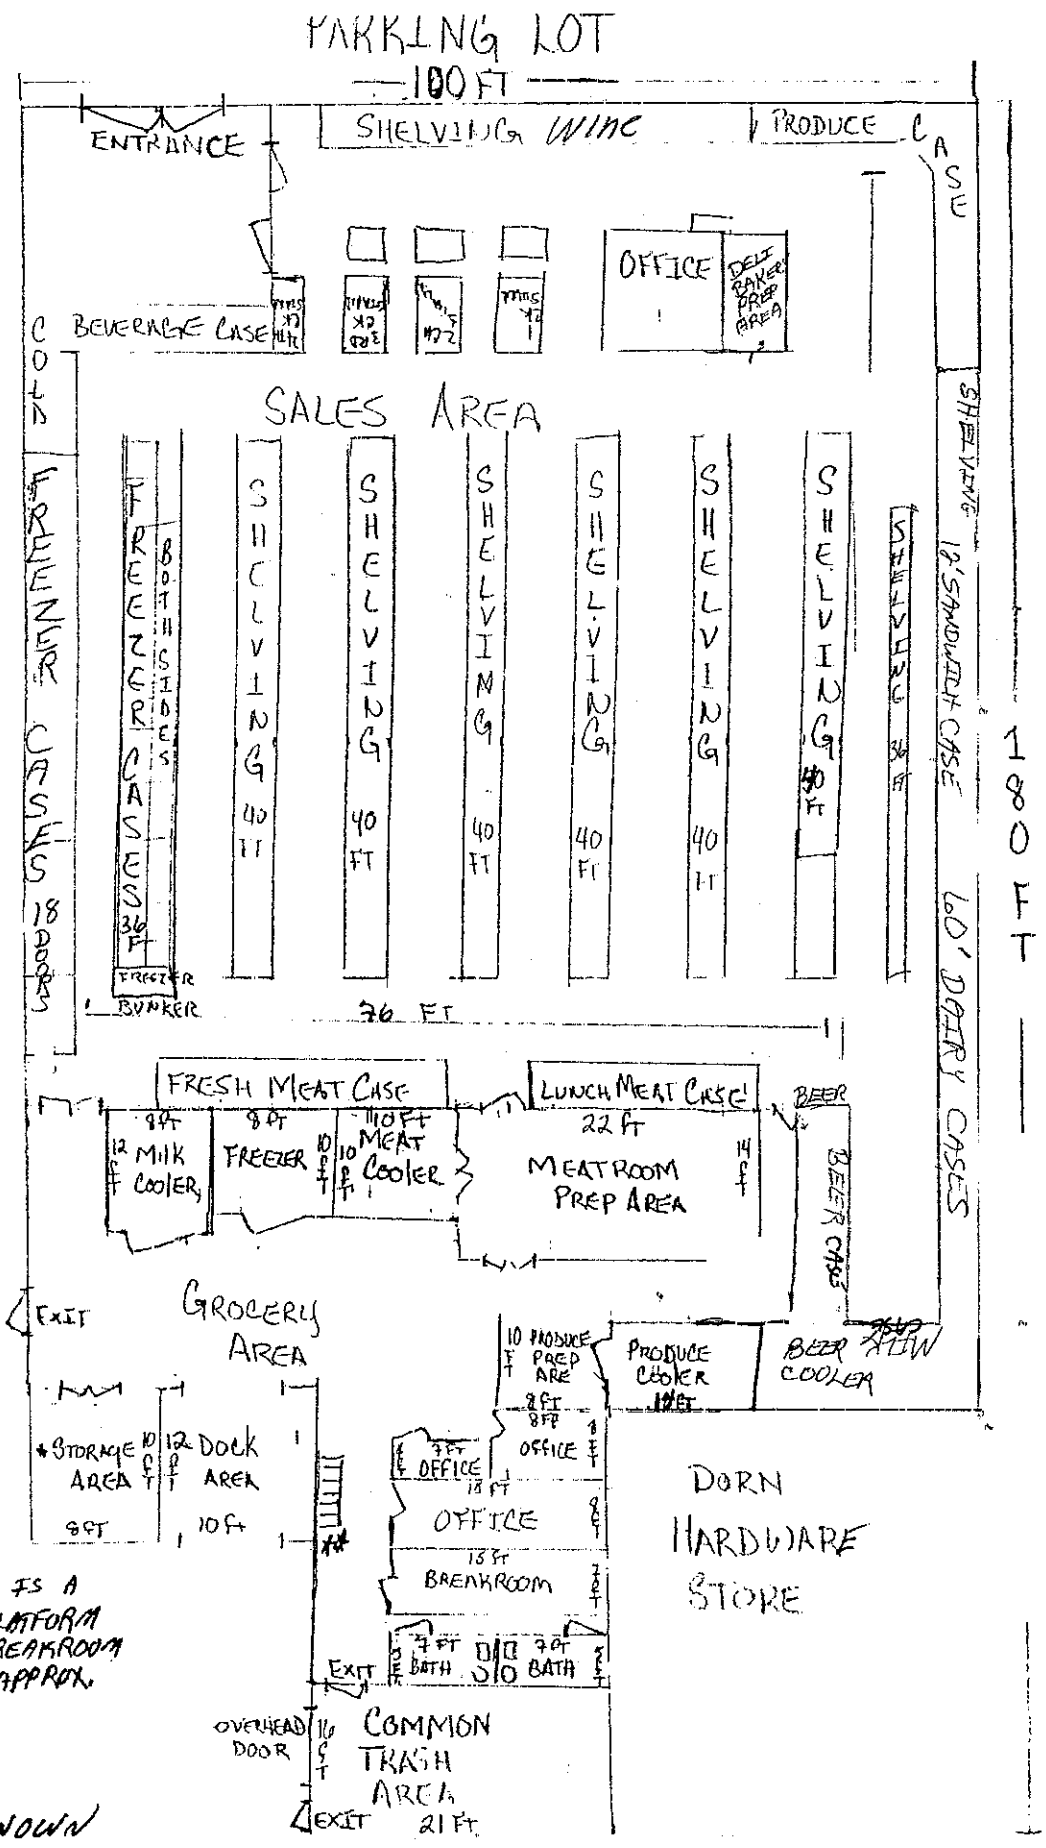 PARKING LOT
100 FT
ENTRANCE
SHELVING WINE
PRODUCE CASE
OFFICE
DELI
BAKERY
PREP
AREA
COLD
BEVERAGE CASE
4TH
CK
STAND
3RD
CK
STAND
2CH
STAND
1
CK
STAND
SALES AREA
FREEZER CASES 18 DOORS
FREEZER CASES 36 FT
BOTH SIDES
FREEZER
BUNKER
SHELVING 40 FT
SHELVING 40 FT
SHELVING 40 FT
SHELVING 40 FT
SHELVING 40 FT
SHELVING 40 FT
SHELVING 36 FT
SHELVING 12' SANDWICH CASE 60' DAIRY CASES
180 FT
76 FT
FRESH MEAT CASE
LUNCH MEAT CASE
BEER
8 FT
12 FT
MILK
COOLER
8 FT
FREEZER
10 FT
10 FT
10 FT
MEAT
COOLER
22 FT
MEATROOM
PREP AREA
14 FT
BEER CASE
EXIT
GROCERY
AREA
10 FT
PRODUCE
PREP
ARE
8 FT
PRODUCE
COOLER
12 FT
BEER
COOLER
*STORAGE
AREA
10 FT
8 FT
12 FT
DOCK
AREA
10 FT
**
7 FT
OFFICE
8 FT
OFFICE
8 FT
15 FT
OFFICE
8 FT
15 FT
BREAKROOM
7 FT
7 FT
BATH
7 FT
BATH
5 FT
DORN
HARDWARE
STORE
IS A
LATFORM
REAKROOM
APPROX.
EXIT
OVERHEAD
DOOR
16 FT
COMMON
TRASH
AREA
21 FT
EXIT
NOWN